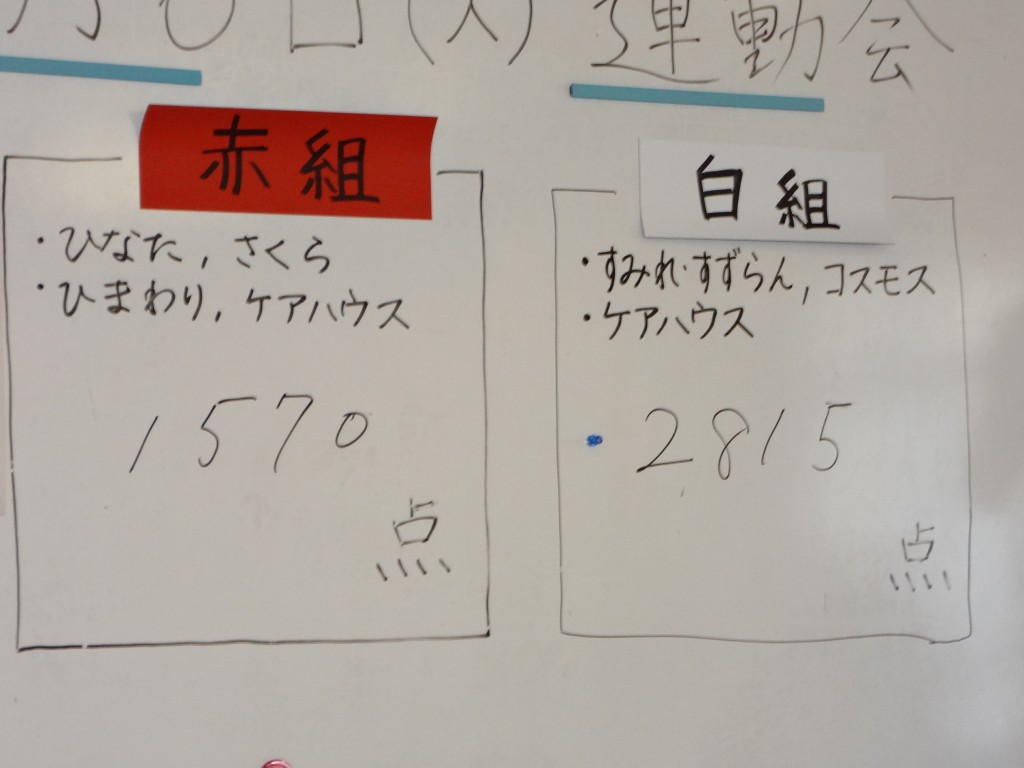 日(火) 運動会
赤組
・ひなた, さくら
・ひまわり, ケアハウス
1570
点
白組
・すみれ・すずらん, コスモス
・ケアハウス
2815
点